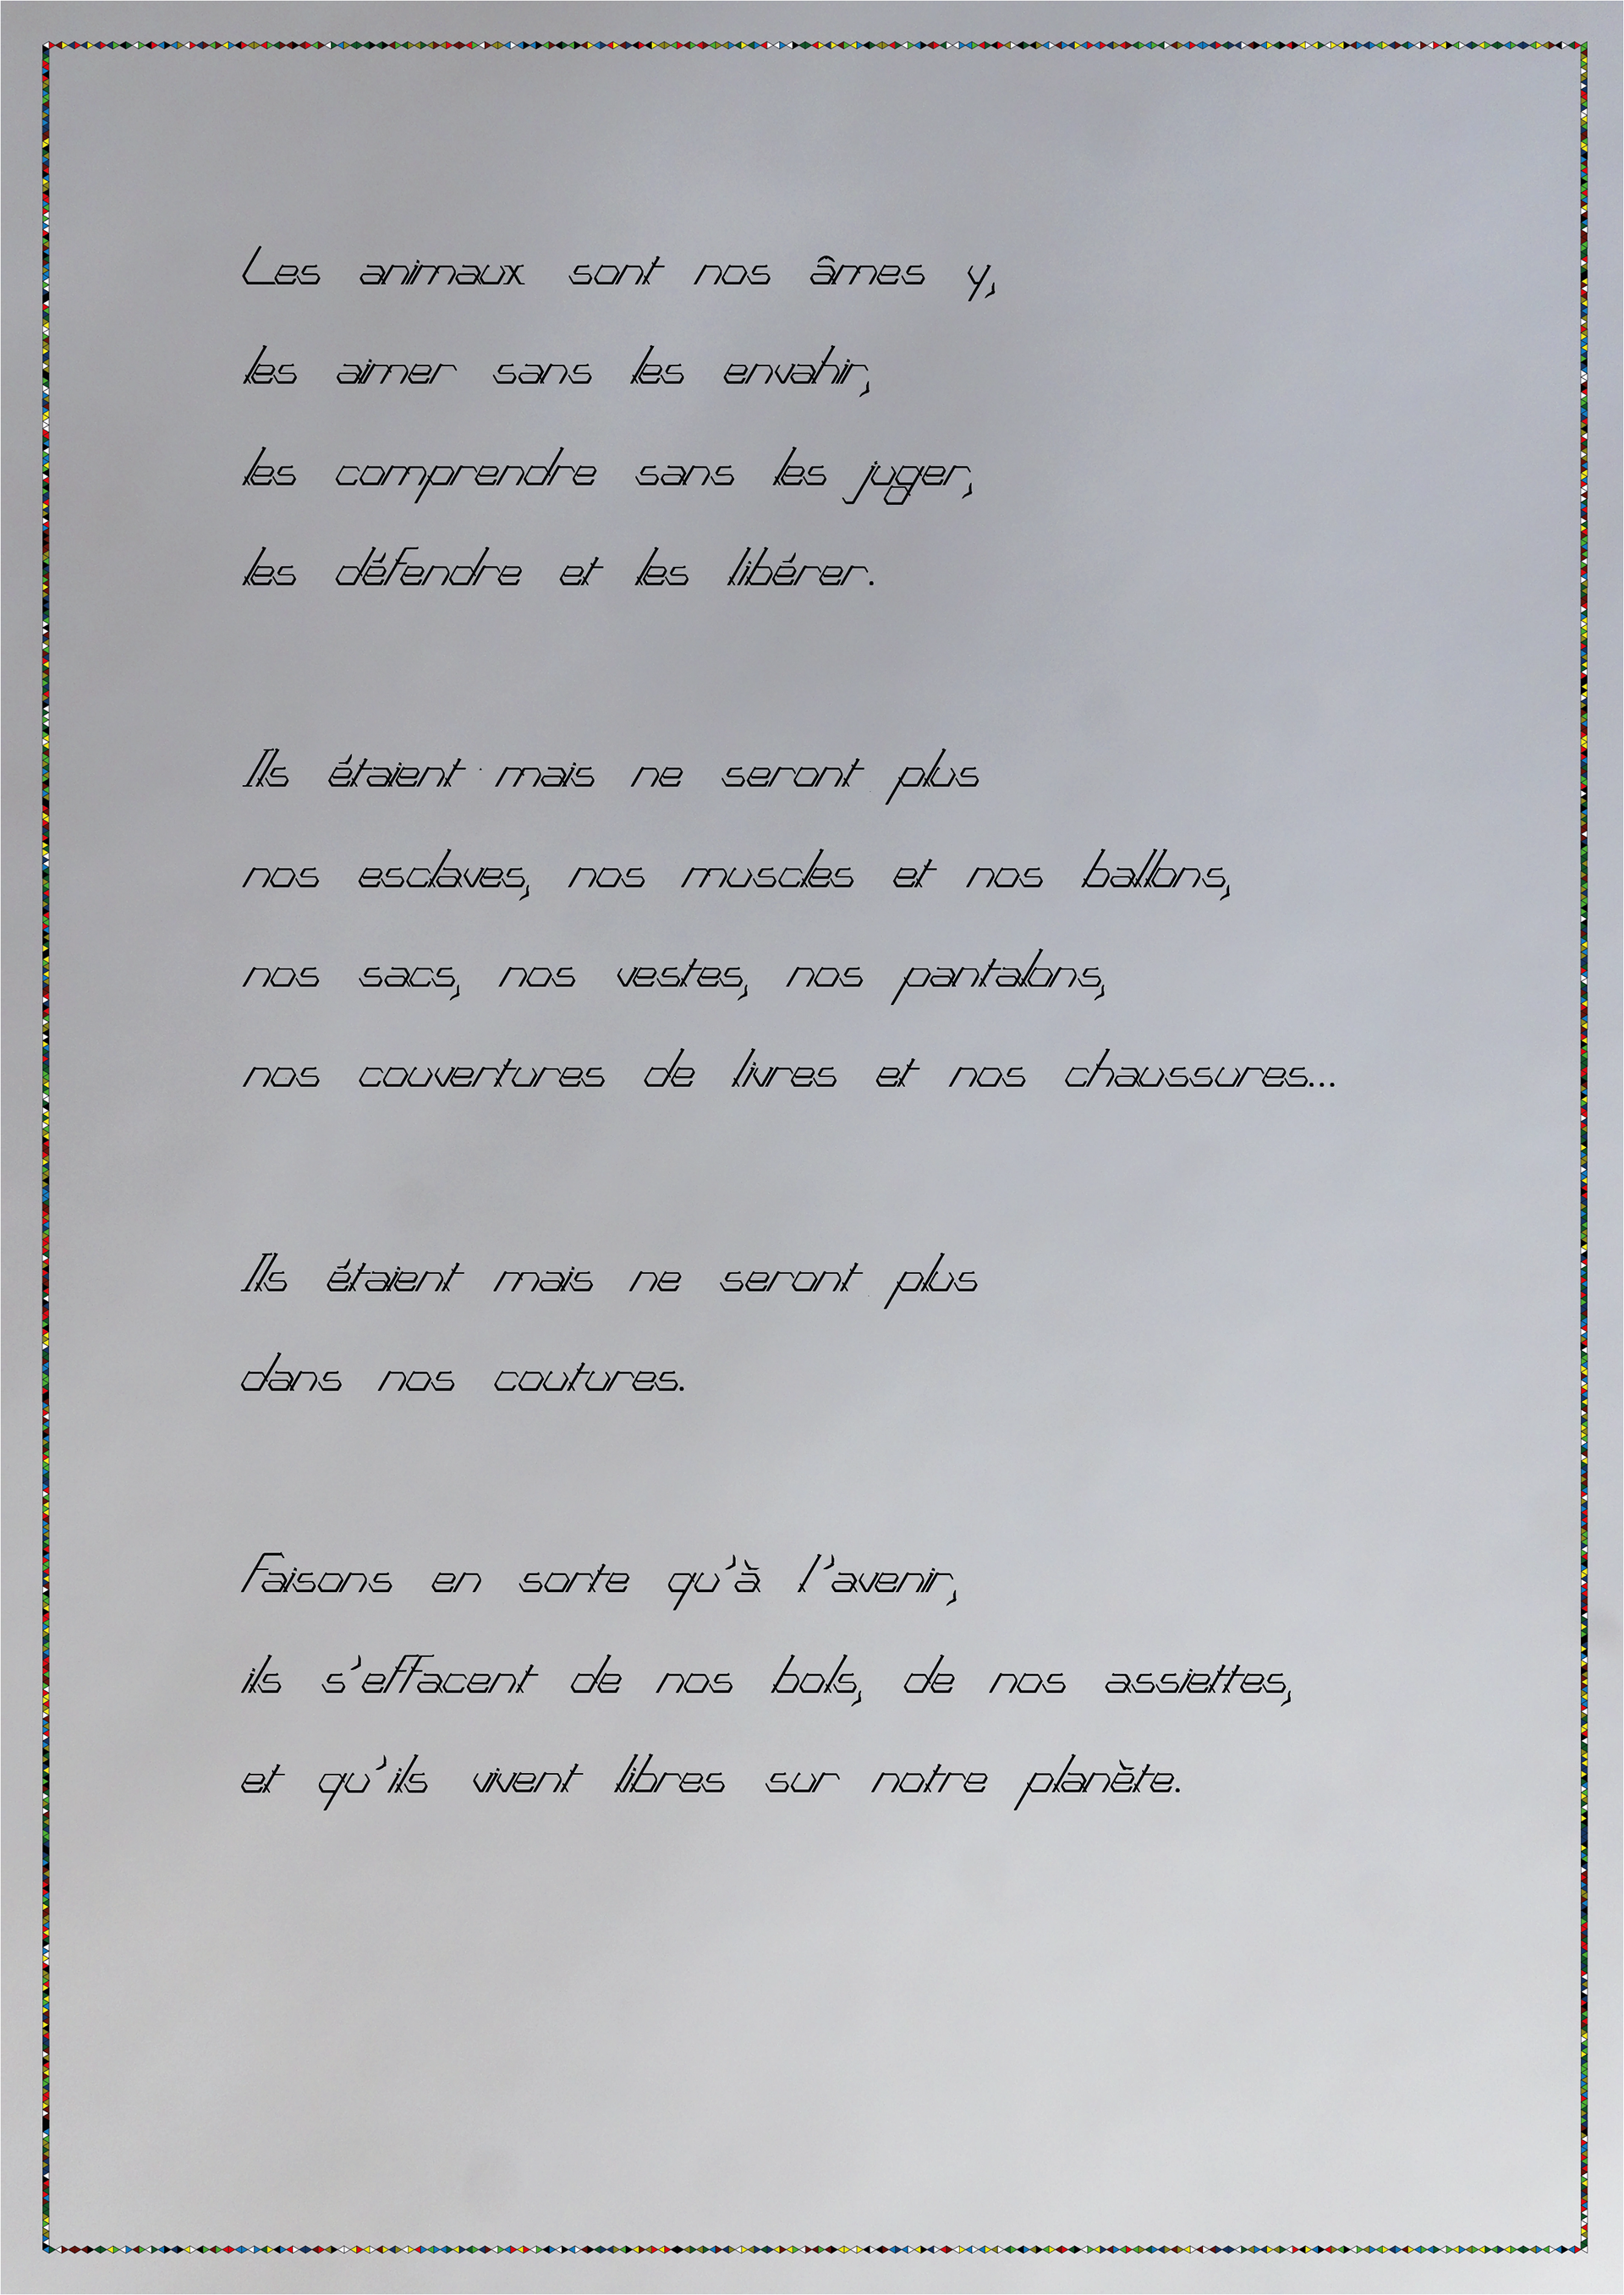 Les animaux sont nos âmes y,
les aimer sans les envahir,
les comprendre sans les juger,
les défendre et les libérer.
Ils étaient mais ne seront plus
nos esclaves, nos muscles et nos ballons,
nos sacs, nos vestes, nos pantalons,
nos couvertures de livres et nos chaussures...
Ils étaient mais ne seront plus
dans nos coutures.
Faisons en sorte qu'à l'avenir,
ils s'effacent de nos bols, de nos assiettes,
et qu'ils vivent libres sur notre planète.